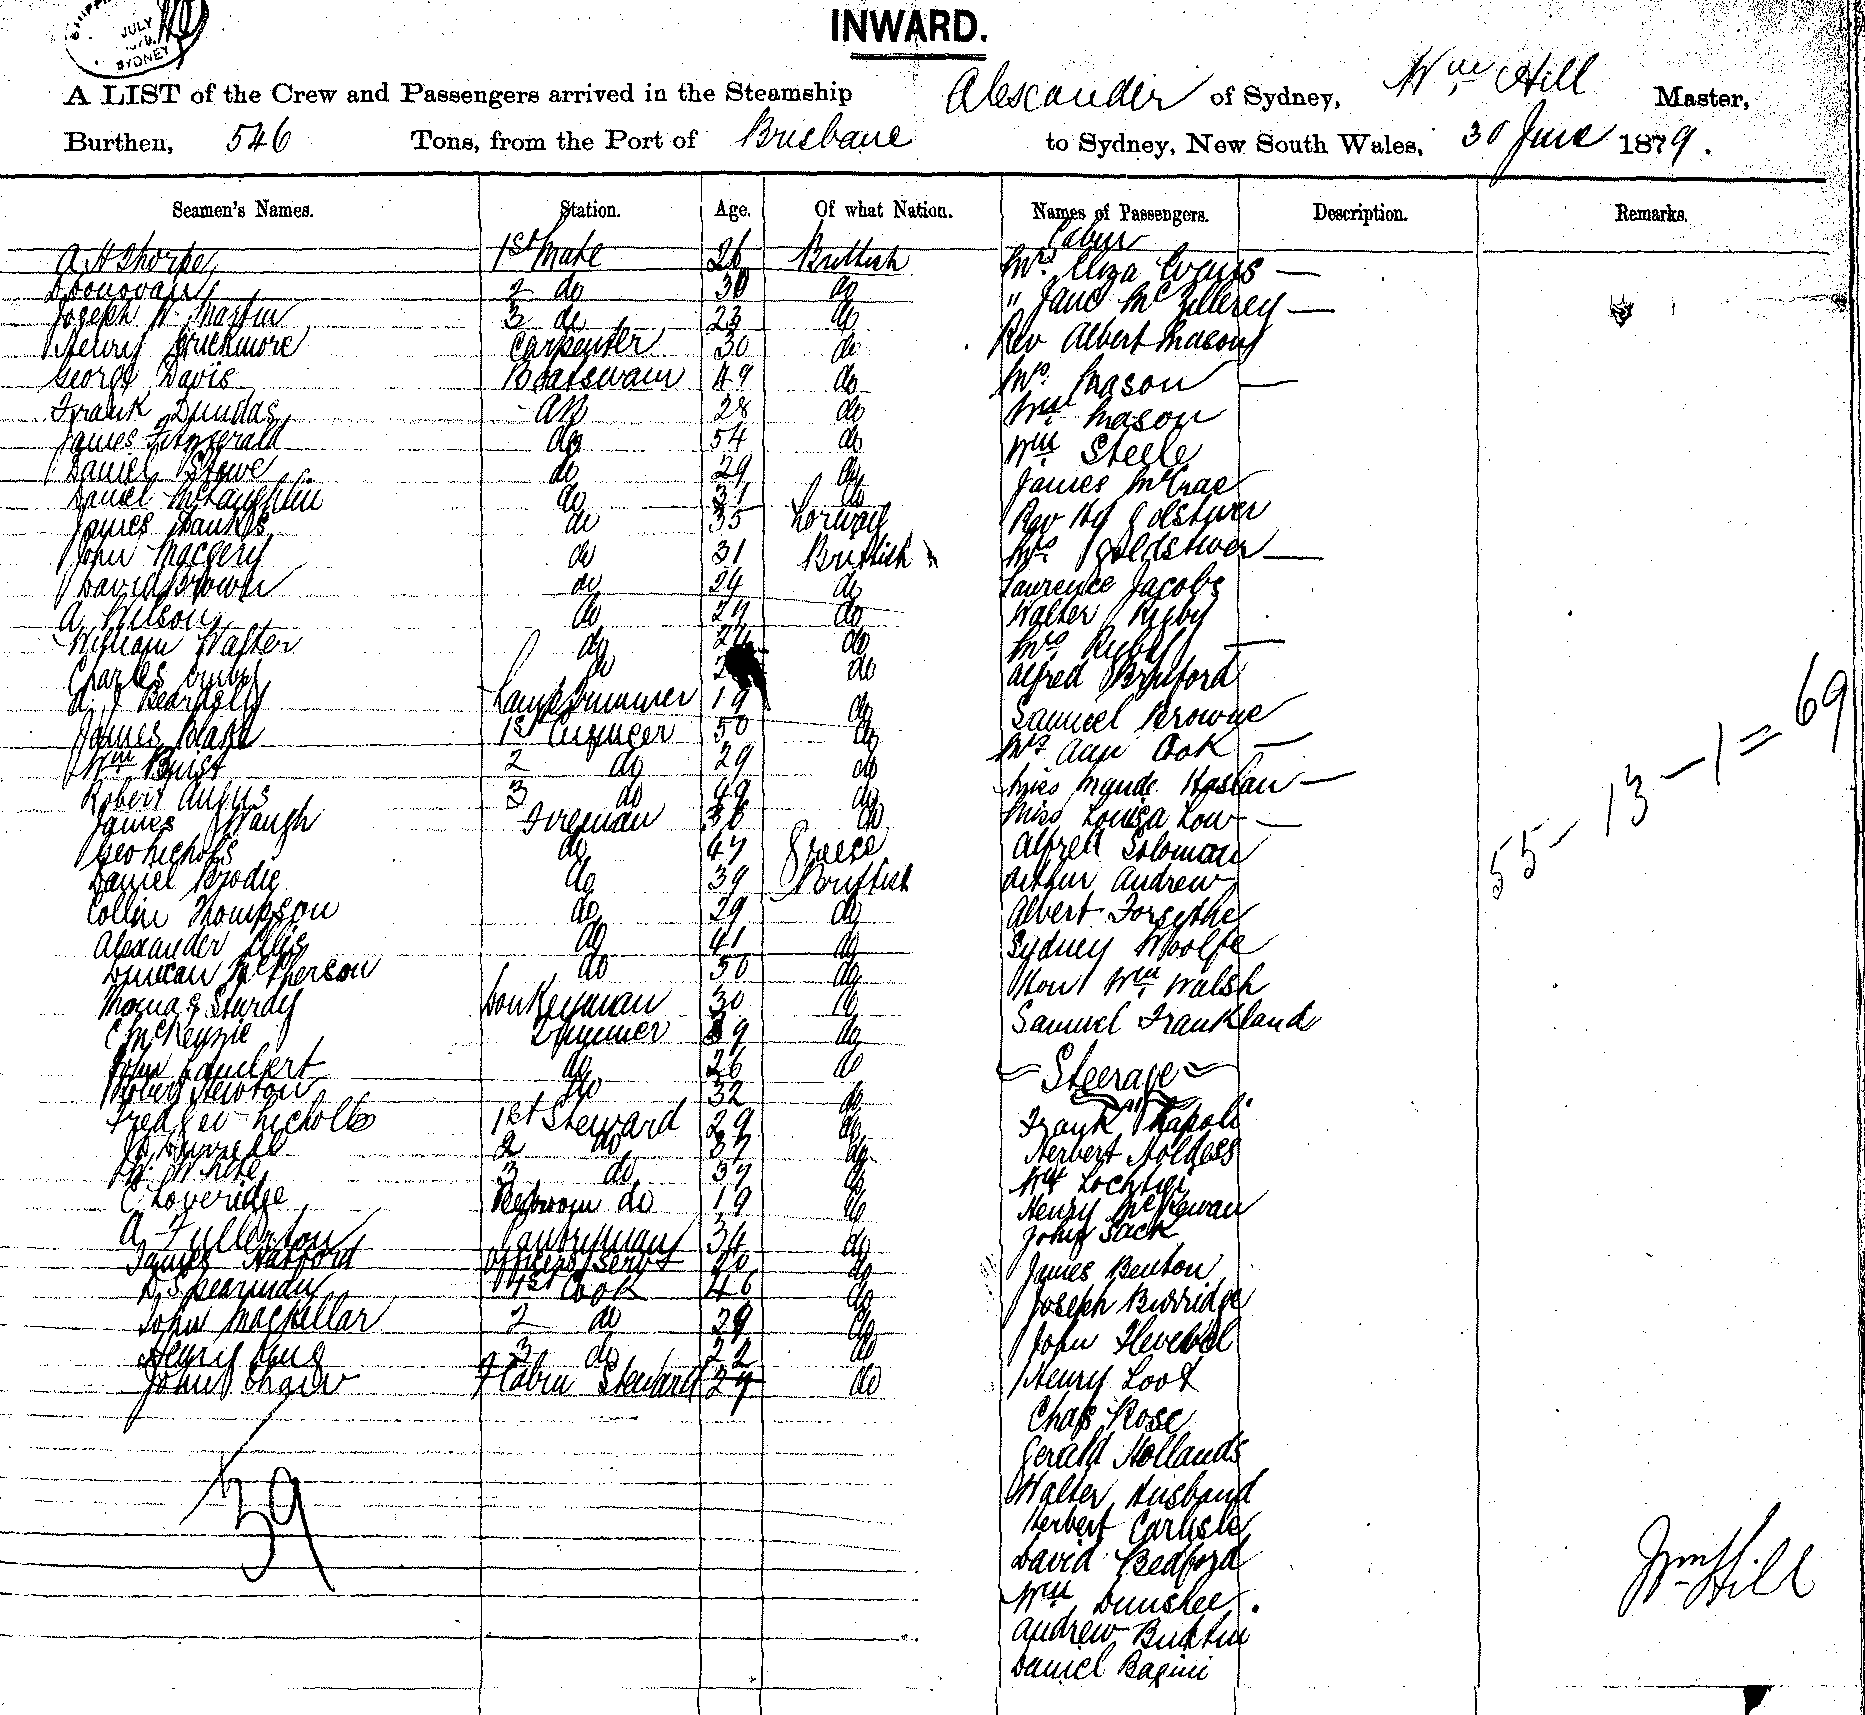 JULY
SYDNEY
INWARD.
A LIST of the Crew and Passengers arrived in the Steamship Alexander of Sydney, Wm Hill Master,
Burthen, 546 Tons, from the Port of Brisbane to Sydney, New South Wales, 30 June 1879.
Seamen's Names. Station. Age. Of what Nation. Names of Passengers. Description. Remarks.
Cabin
A H Thorpe 1st Mate 26 Brittish Mrs Eliza Evans —
Donovan 2 do 30 do " Jane —
Joseph W. Martin 3 do 23 do Rev Albert Mason
Henry Carpenter 30 do
George Davis Boatswain 49 do Mrs Mason —
Frank Dundas AB 28 do Wm Mason
James Fitzgerald do 54 do Wm Steele
Daniel Stowe do 29 do James McCrae
Daniel McLaughlin do 31 do Rev
James Hanks do 35 Norway Mrs Goldstiver —
John Macgery do 31 Brittish Lawrence Jacobs
David Brown do 24 do Walter Rigby
A Wilson do 29 do Mrs —
William Walter do 24 do Alfred
Charles do do Samuel Browne
A J Beardsley Lamptrimmer 19 do Mrs Ann Cook —
James Blake 1st Engineer 50 do Miss Maude Haslan —
Wm Buist 2 do 29 do Miss Louisa Low —
Robert Angus 3 do 49 do Alfred Solomon
James Waugh Fireman 36 do Arthur Andrew
Geo Nichols do 47 Greece Albert Forsythe
Daniel Brodie do 39 Brittish Sydney Woolfe
Collin Thompson do 29 do Hon Wm Walsh
Alexander Ellis do 41 do Samuel Frankland
Duncan McPherson do 50 do
Thomas Sturdy Donkeyman 30 do
C McKenzie Trimmer 39 do
John Lambert do 26 do Steerage
Robert Newton do 32 do Frank Napoli
Fred Geo Nicholls 1st Steward 29 do Herbert Holdess
2 do 37 do Wm
W. White 3 do 37 do Henry McKewan
C Loveridge Bedroom do 19 do John Jack
A Fullerton Pantryman 34 do James Benton
James Harford Officers Servt 20 do Joseph Burridge
D Spearman 1st Cook 46 do John
John Mackellar 2 do 29 do Henry Loot
Henry King 3 do 22 do Chas Rose
John Shaw F Cabin Steward 27 do Gerald Hollands
Walter Husband
Herbert Carlysle
David Bedford
Wm Dunslee
Andrew Buxton
Daniel Bagini
39
55 - 13 - 1 = 69
Wm Hill